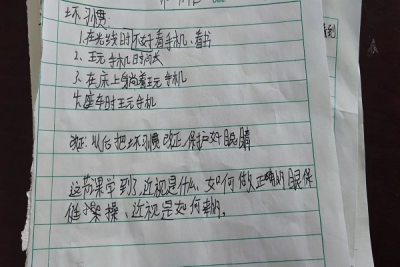 坏习惯:
1.在光线时不好看手机、看书
2、玩手机时间长
3、在床上躺着玩手机
4.座车时玩手机
改正:以后把坏习惯改正,保护好眼睛
这节课学到了近视是什么,如何做正确的眼保
健操,近视是如何来的。
看到